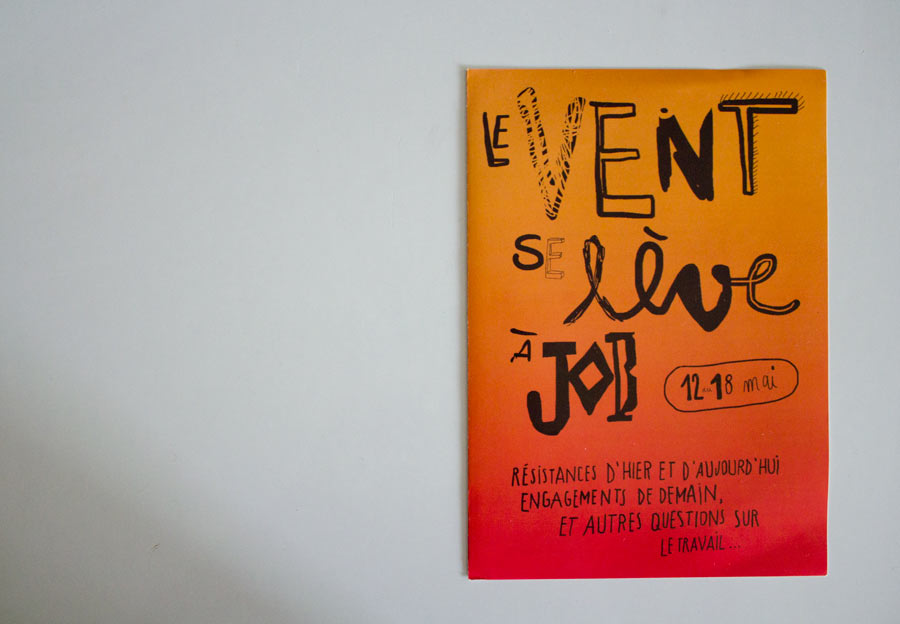 LE VENT
SE lève
À JOB
12 au 18 mai
RÉSISTANCES D'HIER ET D'AUJOURD'HUI
ENGAGEMENTS DE DEMAIN,
ET AUTRES QUESTIONS SUR
LE TRAVAIL...